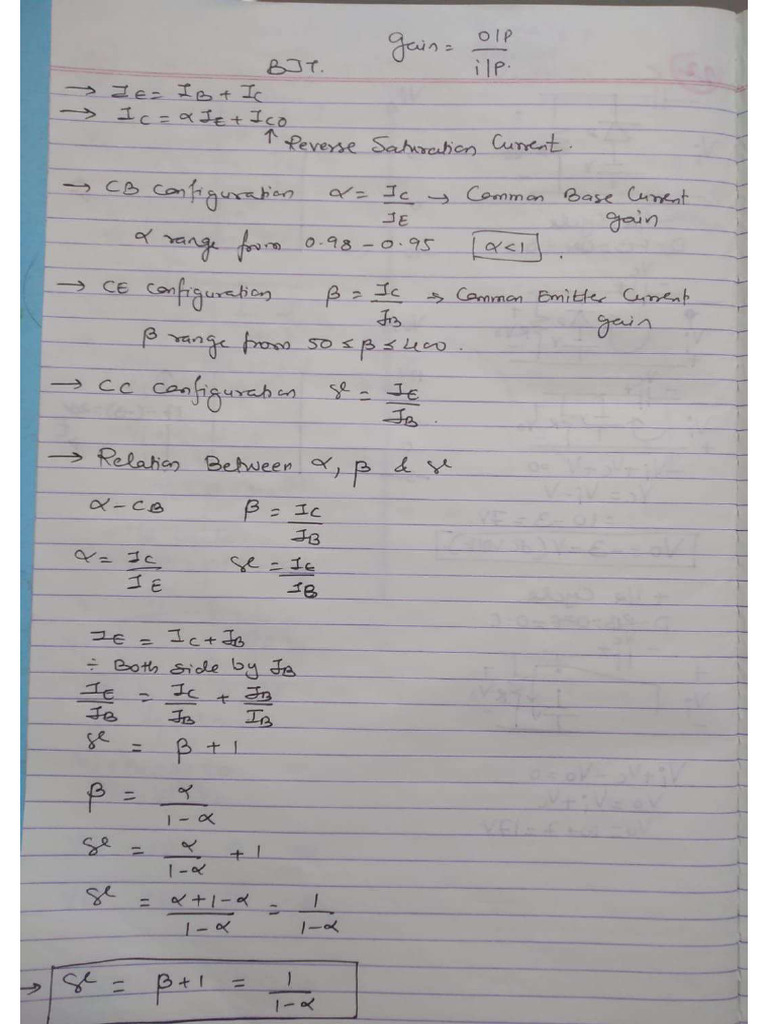 gain = O|P / i|P.
BJT.
→ IE = IB + IC
→ IC = αIE + ICO
↑ Reverse Saturation Current.
→ CB Configuration α = IC / IE → Common Base Current gain
α range from 0.98 – 0.95 α<1 .
→ CE Configuration β = IC / IB → Common Emitter Current gain
β range from 50 ≤ β ≤ 400.
→ CC Configuration γ = IE / IB.
→ Relation Between α, β & γ
α – CB β = IC / IB
α = IC / IE γ = IE / IB
IE = IC + IB
÷ Both side by IB
IE / IB = IC / IB + IB / IB
γ = β + 1
β = α / 1 – α
γ = α / 1 – α + 1
γ = α + 1 – α / 1 – α = 1 / 1 – α
→ γ = β + 1 = 1 / 1 – α